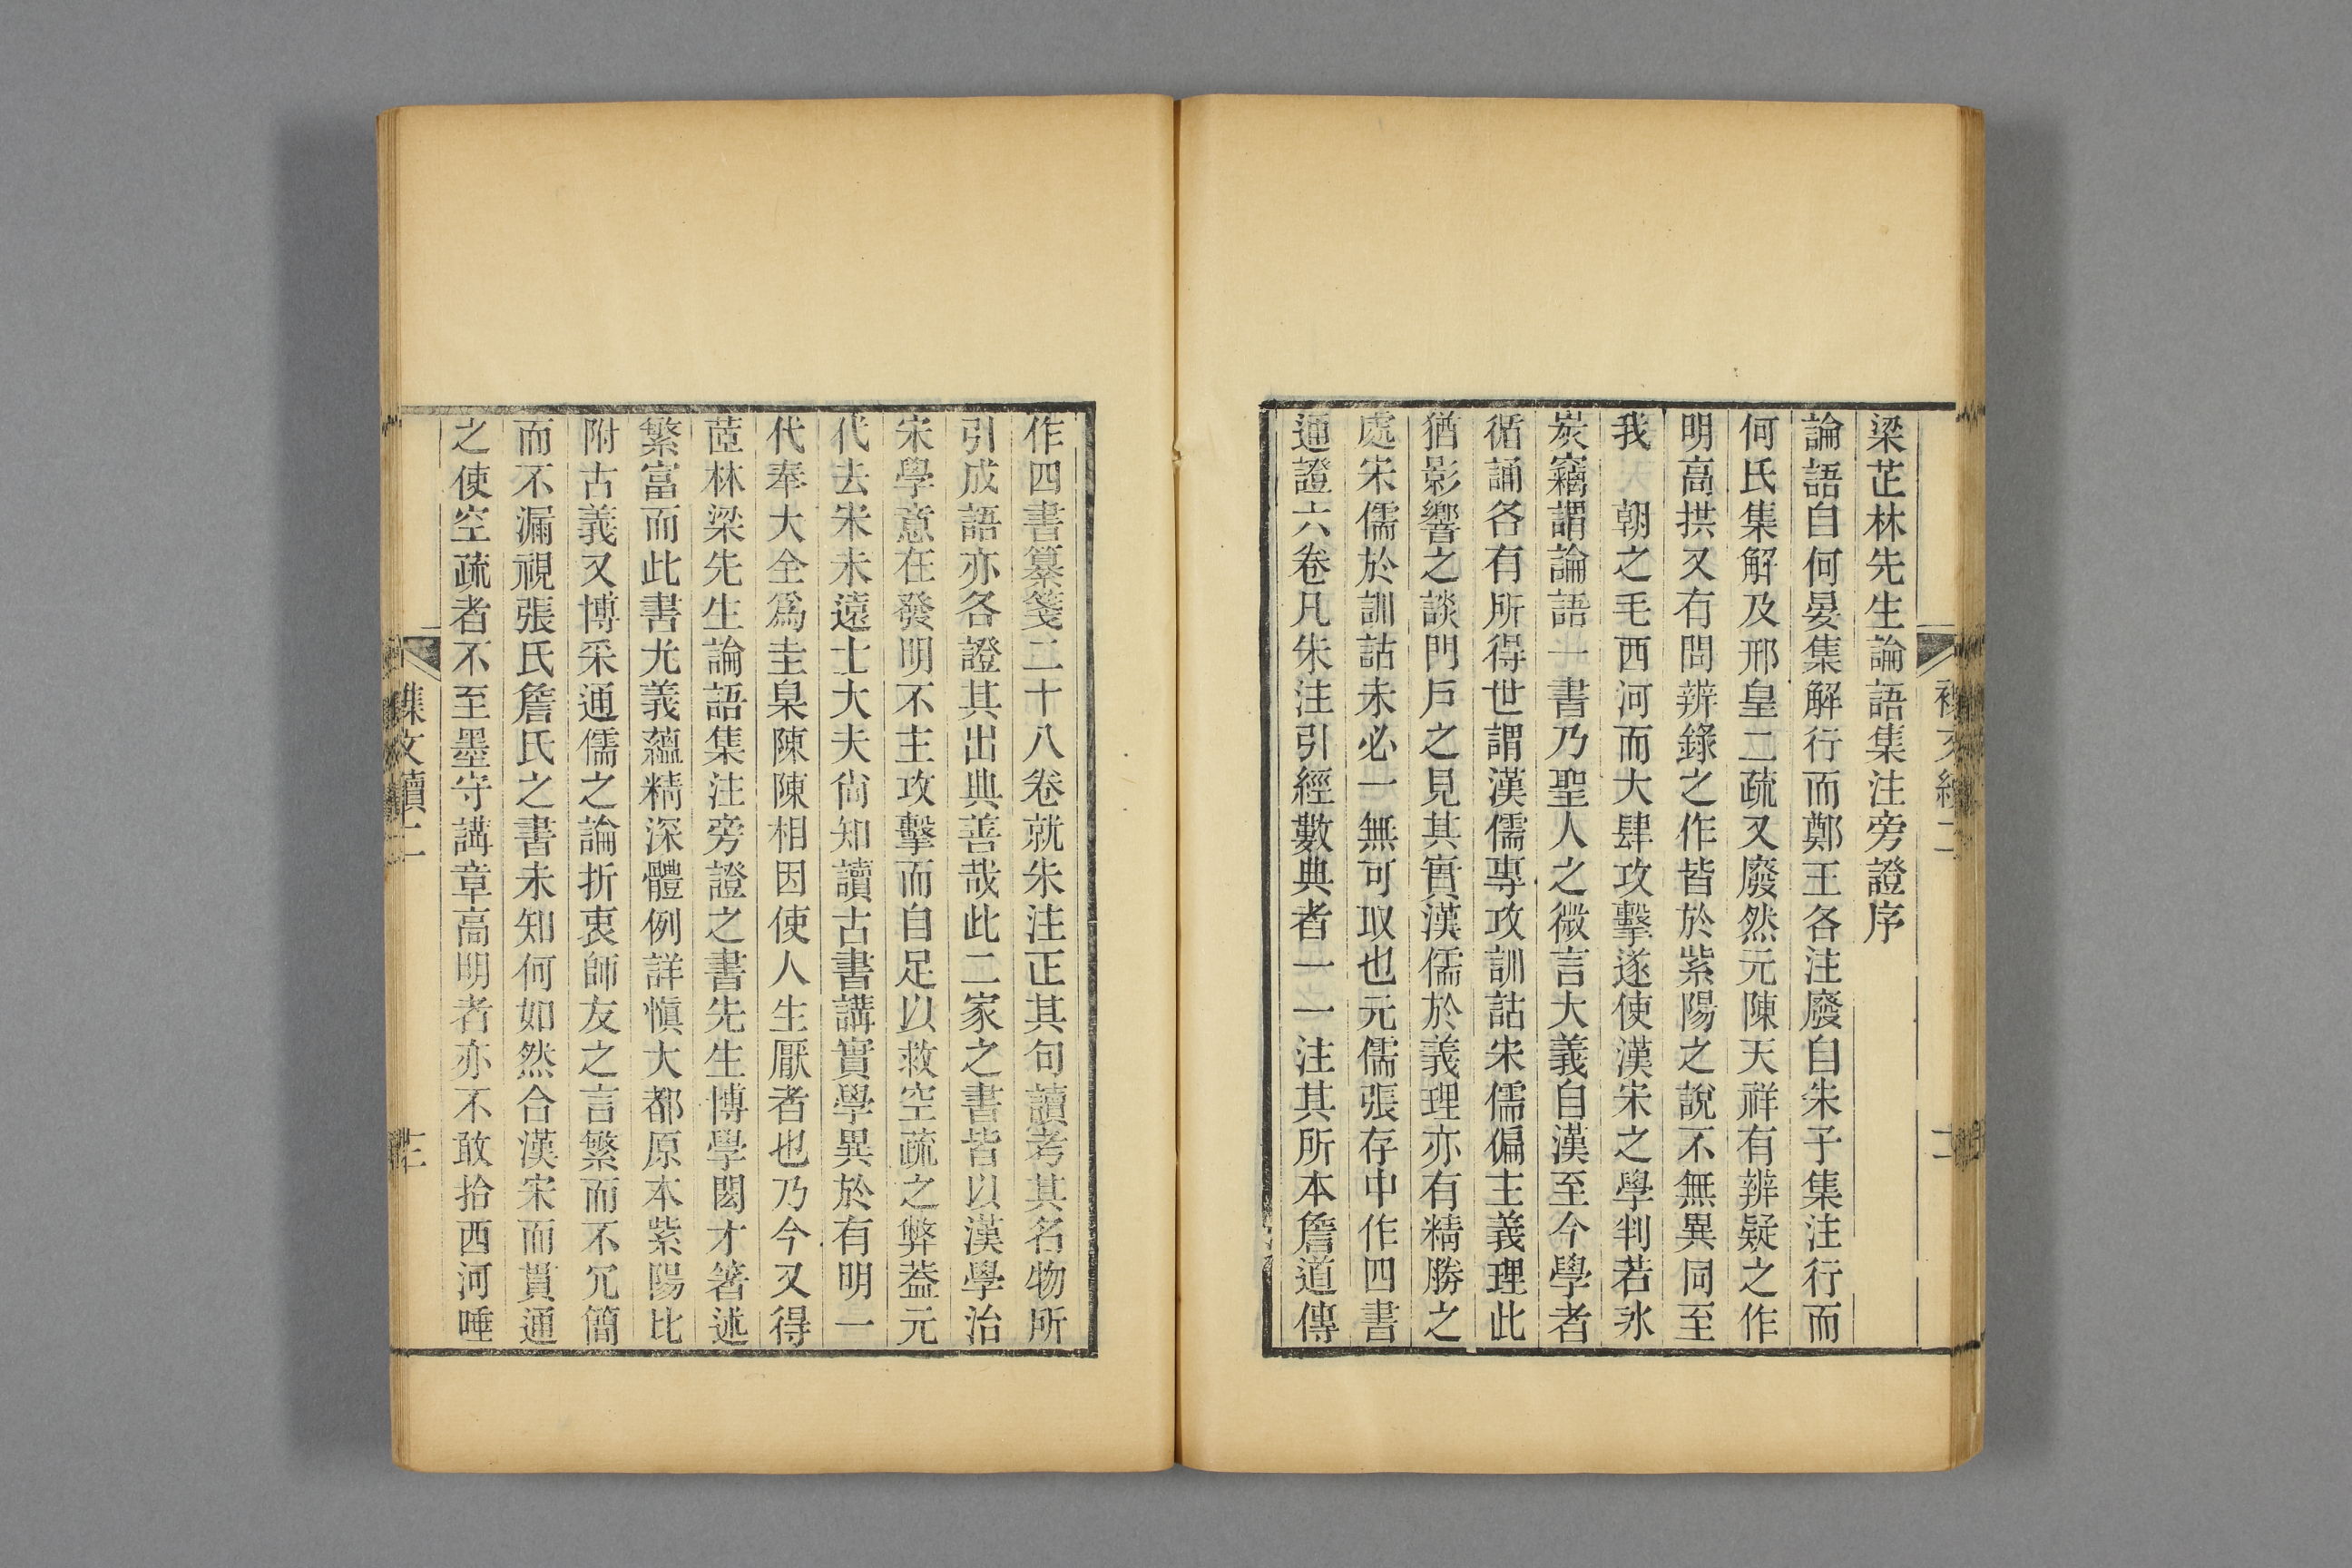 梁芷林先生論語集注旁證序
論語自何晏集解行而鄭王各注廢自朱子集注行而
何氏集解及邢皇二疏又廢然元陳天祥有辨疑之作
明高拱又有問辨錄之作皆於紫陽之說不無異同至
我　朝之毛西河而大肆攻擊遂使漢宋之學判若氷
炭竊謂論語一書乃聖人之微言大義自漢至今學者
循誦各有所得世謂漢儒專攻訓詁宋儒偏主義理此
猶影響之談門戶之見其實漢儒於義理亦有精勝之
處宋儒於訓詁未必一無可取也元儒張存中作四書
通證六卷凡朱注引經數典者一一注其所本詹道傳
作四書纂箋二十八卷就朱注正其句讀考其名物所
引成語亦各證其出典善哉此二家之書皆以漢學治
宋學意在發明不主攻擊而自足以救空疏之弊葢元
代去宋未遠士大夫尙知讀古書講實學異於有明一
代奉大全爲圭臬陳陳相因使人生厭者也乃今又得
茝林梁先生論語集注旁證之書先生博學閎才箸述
繁富而此書尤義蘊精深體例詳愼大都原本紫陽比
附古義又博采通儒之論折衷師友之言繁而不冗簡
而不漏視張氏詹氏之書未知何如然合漢宋而貫通
之使空疏者不至墨守講章高明者亦不敢拾西河唾
襍文續二